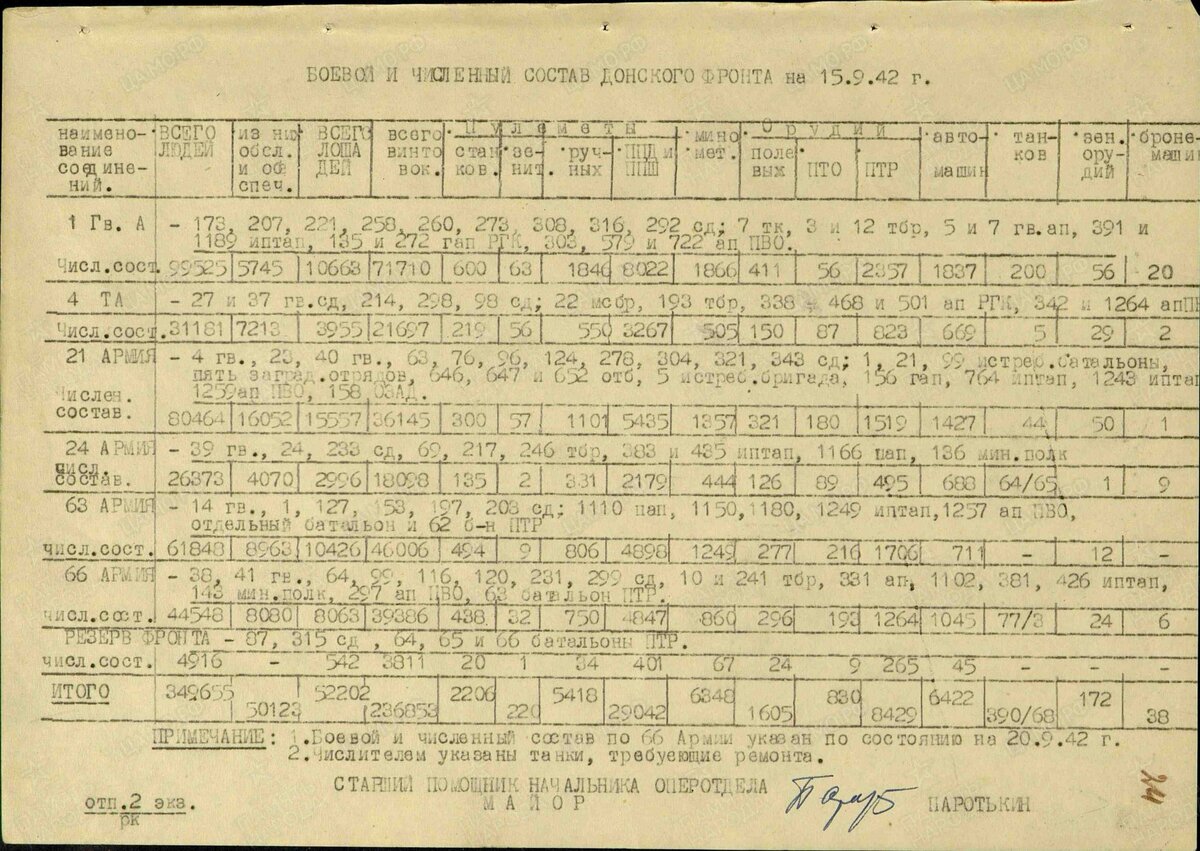 БОЕВОЙ И ЧИСЛЕННЫЙ СОСТАВ ДОНСКОГО ФРОНТА на 15.9.42 г.
наимено- ВСЕГО из них ВСЕГО всего Пулеметы мино Орудий авто- тан- зен. броне-
вание ЛЮДЕЙ обсл. ЛОША винто стан- зе- руч- ППД и мет. поле ПТО ПТР машин ков ору- машин
соедине- и об ДЕЙ вок. ков. нит. ных ППШ вых дий
ний. спеч.
1 Гв. А – 173, 207, 221, 258, 260, 273, 308, 316, 292 сд; 7 тк, 3 и 12 тбр, 5 и 7 гв.ап, 391 и
1189 иптап, 135 и 272 гап РГК, 303, 579 и 722 ап ПВО.
Числ.сост. 99525 5745 10663 71710 600 63 1846 8022 1866 411 56 2357 1837 200 56 20
4 ТА – 27 и 37 гв.сд, 214, 298, 98 сд; 22 мсбр, 193 тбр, 338 – 468 и 501 ап РГК, 342 и 1264 апПВ
Числ.сост. 31181 7213 3955 21697 219 56 550 3267 505 150 87 823 669 5 29 2
21 АРМИЯ – 4 гв., 23, 40 гв., 63, 76, 96, 124, 278, 304, 321, 343 сд; 1, 21, 99 истреб.батальоны,
пять заград.отрядов, 646, 647 и 652 отб, 5 истреб.бригада, 156 гап, 764 иптап, 1243 иптап
1259ап ПВО, 158 ОЗАД.
Числен.
состав. 80464 16052 15557 36145 300 57 1101 5435 1357 321 180 1519 1427 44 50 1
24 АРМИЯ – 39 гв., 24, 233 сд, 69, 217, 246 тбр, 383 и 435 иптап, 1166 пап, 136 мин.полк
числ.
состав. 26373 4070 2996 18098 135 2 331 2179 444 126 89 495 688 64/65 1 9
63 АРМИЯ – 14 гв., 1, 127, 153, 197, 203 сд; 1110 пап, 1150,1180, 1249 иптап,1257 ап ПВО,
отдельный батальон и 62 б-н ПТР
числ.сост. 61848 8963 10426 46006 494 9 806 4898 1249 277 216 1706 711 – 12 –
66 АРМИЯ – 38, 41 гв., 64, 99, 116, 120, 231, 299 сд, 10 и 241 тбр, 331 ап, 1102, 381, 426 иптап,
143 мин.полк, 297 ап ПВО, 63 батальон ПТР.
числ.сост. 44548 8080 8063 39386 438 32 750 4847 860 296 193 1264 1045 77/3 24 6
РЕЗЕРВ ФРОНТА – 87, 315 сд , 64, 65 и 66 батальоны ПТР.
числ.сост. 4916 – 542 3811 20 1 34 401 67 24 9 265 45 – – –
ИТОГО 349655 50123 52202 236853 2206 220 5418 29042 6348 1605 830 8429 6422 390/68 172 38
ПРИМЕЧАНИЕ: 1.Боевой и численный состав по 66 Армии указан по состоянию на 20.9.42 г.
2.Числителем указаны танки, требующие ремонта.
СТАРШИЙ ПОМОЩНИК НАЧАЛЬНИКА ОПЕРОТДЕЛА
МАЙОР ПАРОТЬКИН
отп.2 экз.
рк
24